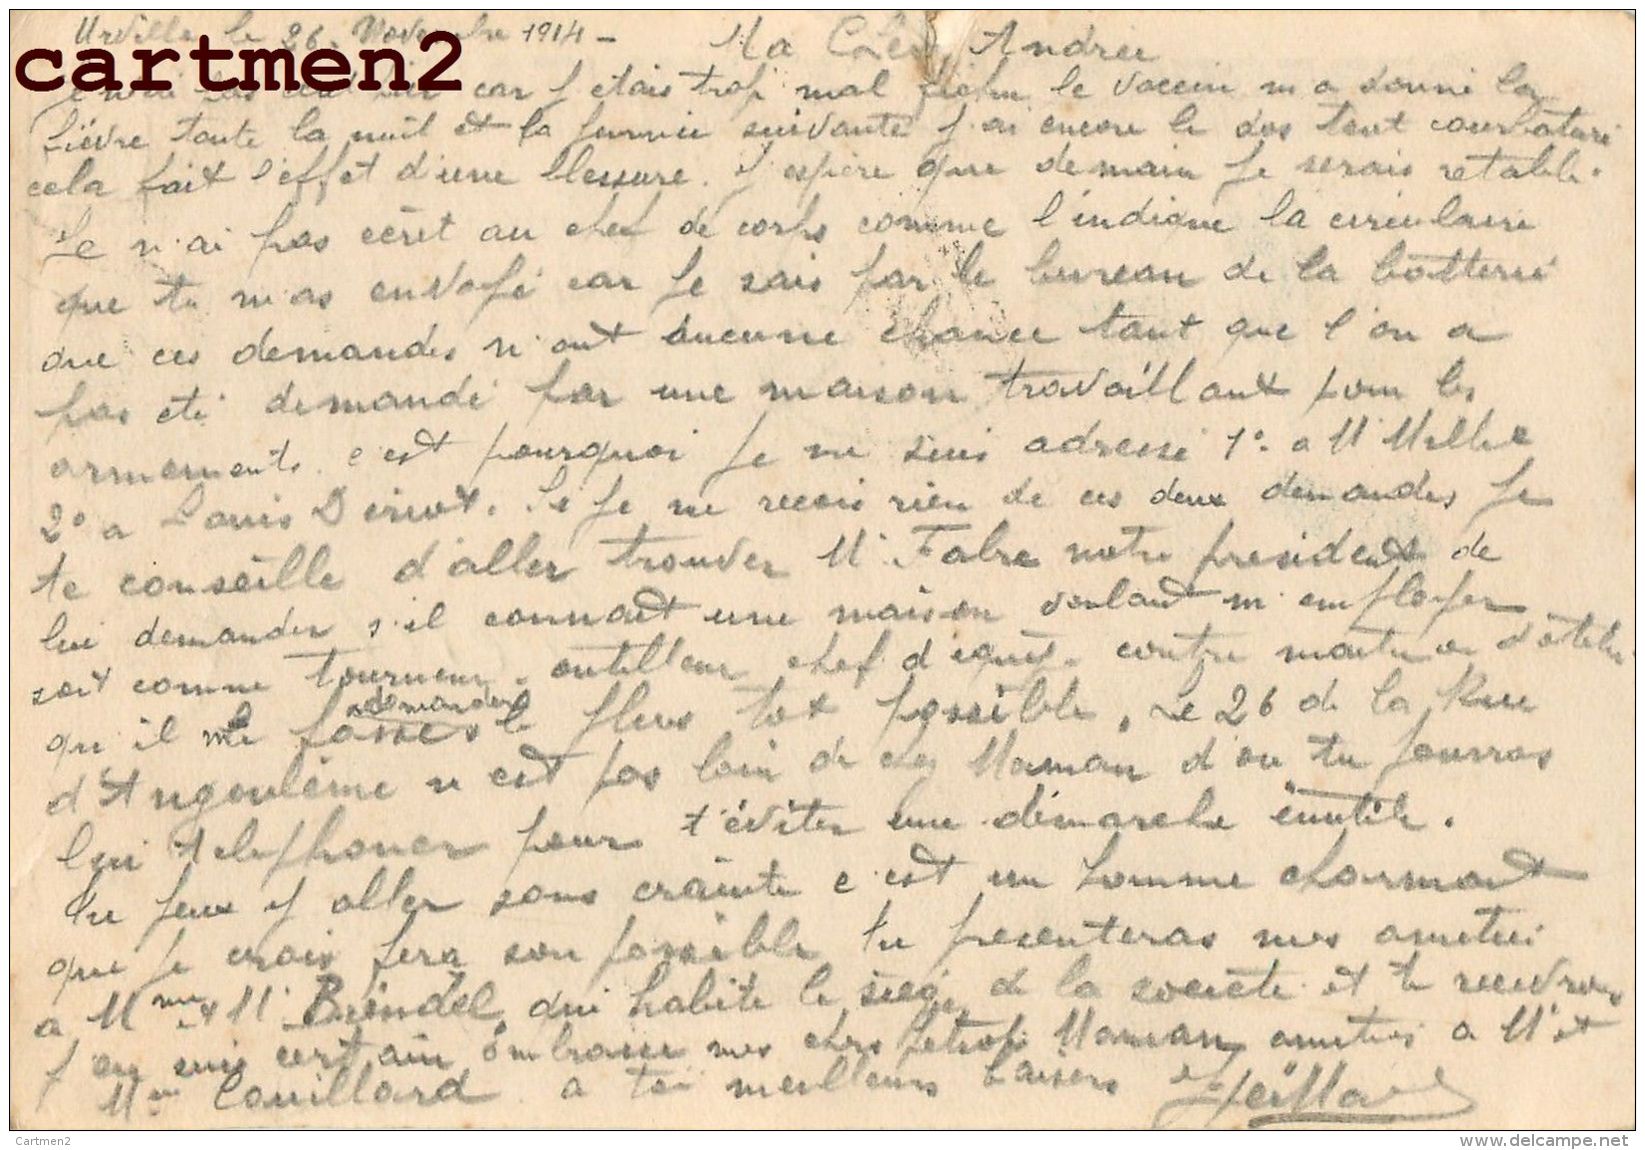 Urville le 26 Novembre 1914 - Ma Chère Andrée
cartmen2
car j etais trop mal fichu le vaccin m a donné la
fièvre toute la nuit et la journée suivante j ai encore le dos tout courbaturé
cela fait l'effet d'une blessure. j espère que demain je serais retabli.
Je n ai pas ecret au chef de corps comme l'indique la circulaire
que tu m as envoyé car je sais par le bureau de la batterie
que ces demandes n ont aucune chance tant que l'on a
pas eté demandé par une maison travaillant pour les
armements. c est pourquoi je me suis adressé 1° a M
2° a Louis Si je ne recois rien de ces deux demandes je
te conseille d'aller trouver Mr Fabre notre president de
lui demander s il connait une maison voulant m employer
soit comme tourneur, outilleur chef d'equipe. contre maitre d'atelier
demander
qu il me fasses le plus tot possible. Le 26 de la Rue
d'Angoulême n est pas loin de chez Maman d ou tu pourras
lui telephoner pour t'éviter une démarche inutile.
tu peux y aller sans crainte c est un homme charmant
que je crois fera son possible tu presenteras mes amitiés
a Mme et Mr Brindel qui habite le siège de la société et te recevrons
j en suis certain embrasse mes chers Maman amitiés a Mr et
Mme Couillard a toi meilleurs baisers
Cartmen2
www.delcampe.net